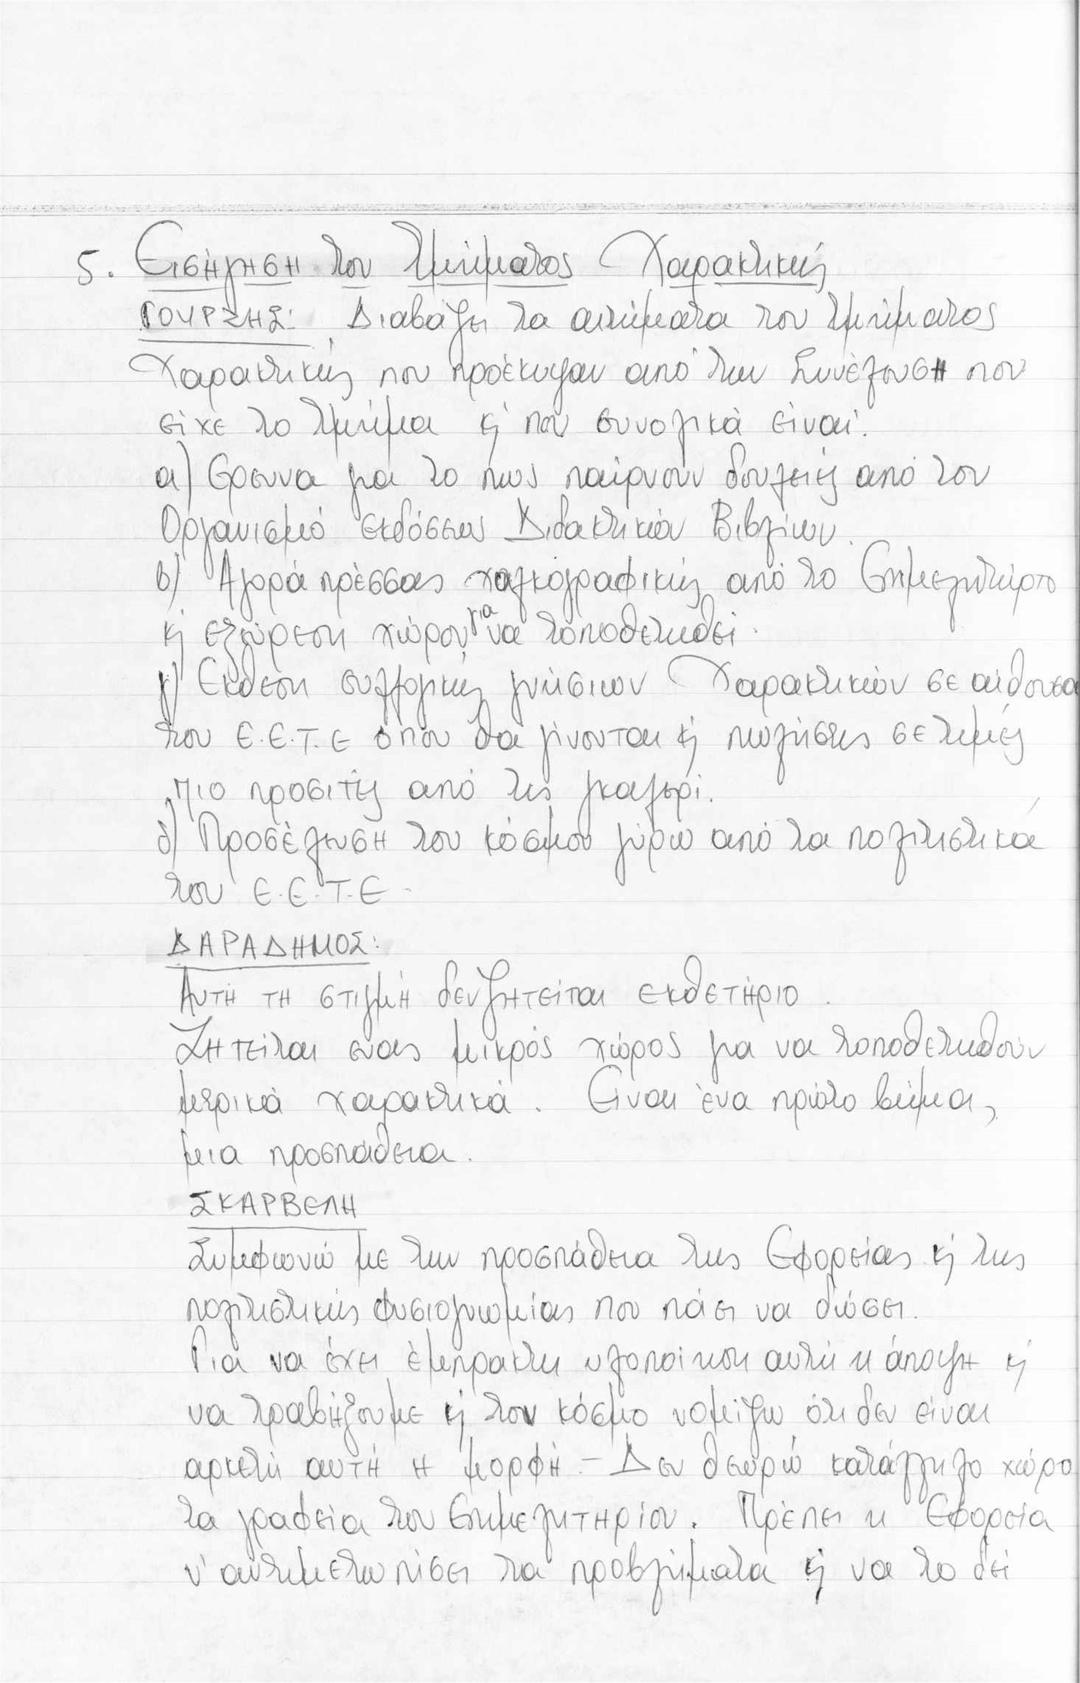 5. Εισήγηση του Τμήματος Χαρακτικής
ΓΟΥΡΖΗΣ: Διαβάζει τα αιτήματα του τμήματος
Χαρακτικής που προέκυψαν από την Συνέλευση που
είχε το τμήμα κ' που συνολικά είναι:
α) Ερευνα για το πως παίρνουν δουλειές από τον
Οργανισμό εκδόσεως Διδακτικών Βιβλίων.
β) Αγορά πρέσσας χαλκογραφικής από το Επιμελητήριο
κ' εξεύρεση χώρου για να τοποθετηθεί.
γ) Εκθεση συλλογικής γνήσιων Χαρακτικών σε αίθουσα
του Ε.Ε.Τ.Ε όπου θα γίνονται κ' πωλήσεις σε τιμές
πιο προσιτές από τις γκαλερί.
δ) Προσέλκυση του κόσμου γύρω από τα πολιτιστικά
του Ε.Ε.Τ.Ε.
ΔΑΡΑΔΗΜΟΣ:
Αυτή τη στιγμή δεν ζητείται εκθετήριο.
Ζητείται ενας μικρός χώρος για να τοποθετηθούν
μερικά χαρακτικά. Είναι ένα πρώτο βήμα,
μια προσπάθεια.
ΣΚΑΡΒΕΛΗ
Συμφωνώ με την προσπάθεια της Εφορείας κ' της
πολιτιστικής φυσιογνωμίας που πάει να δώσει.
Για να έχει έμπρακτη υλοποίηση αυτή η άποψη κ'
να τραβήξουμε κ' τον κόσμο νομίζω ότι δεν είναι
αρκετή αυτή η μορφή. - Δεν θεωρώ κατάλληλο χώρο
τα γραφεία του Επιμελητηρίου. Πρέπει η Εφορεία
ν' αντιμετωπίσει τα προβλήματα κ' να το δεί